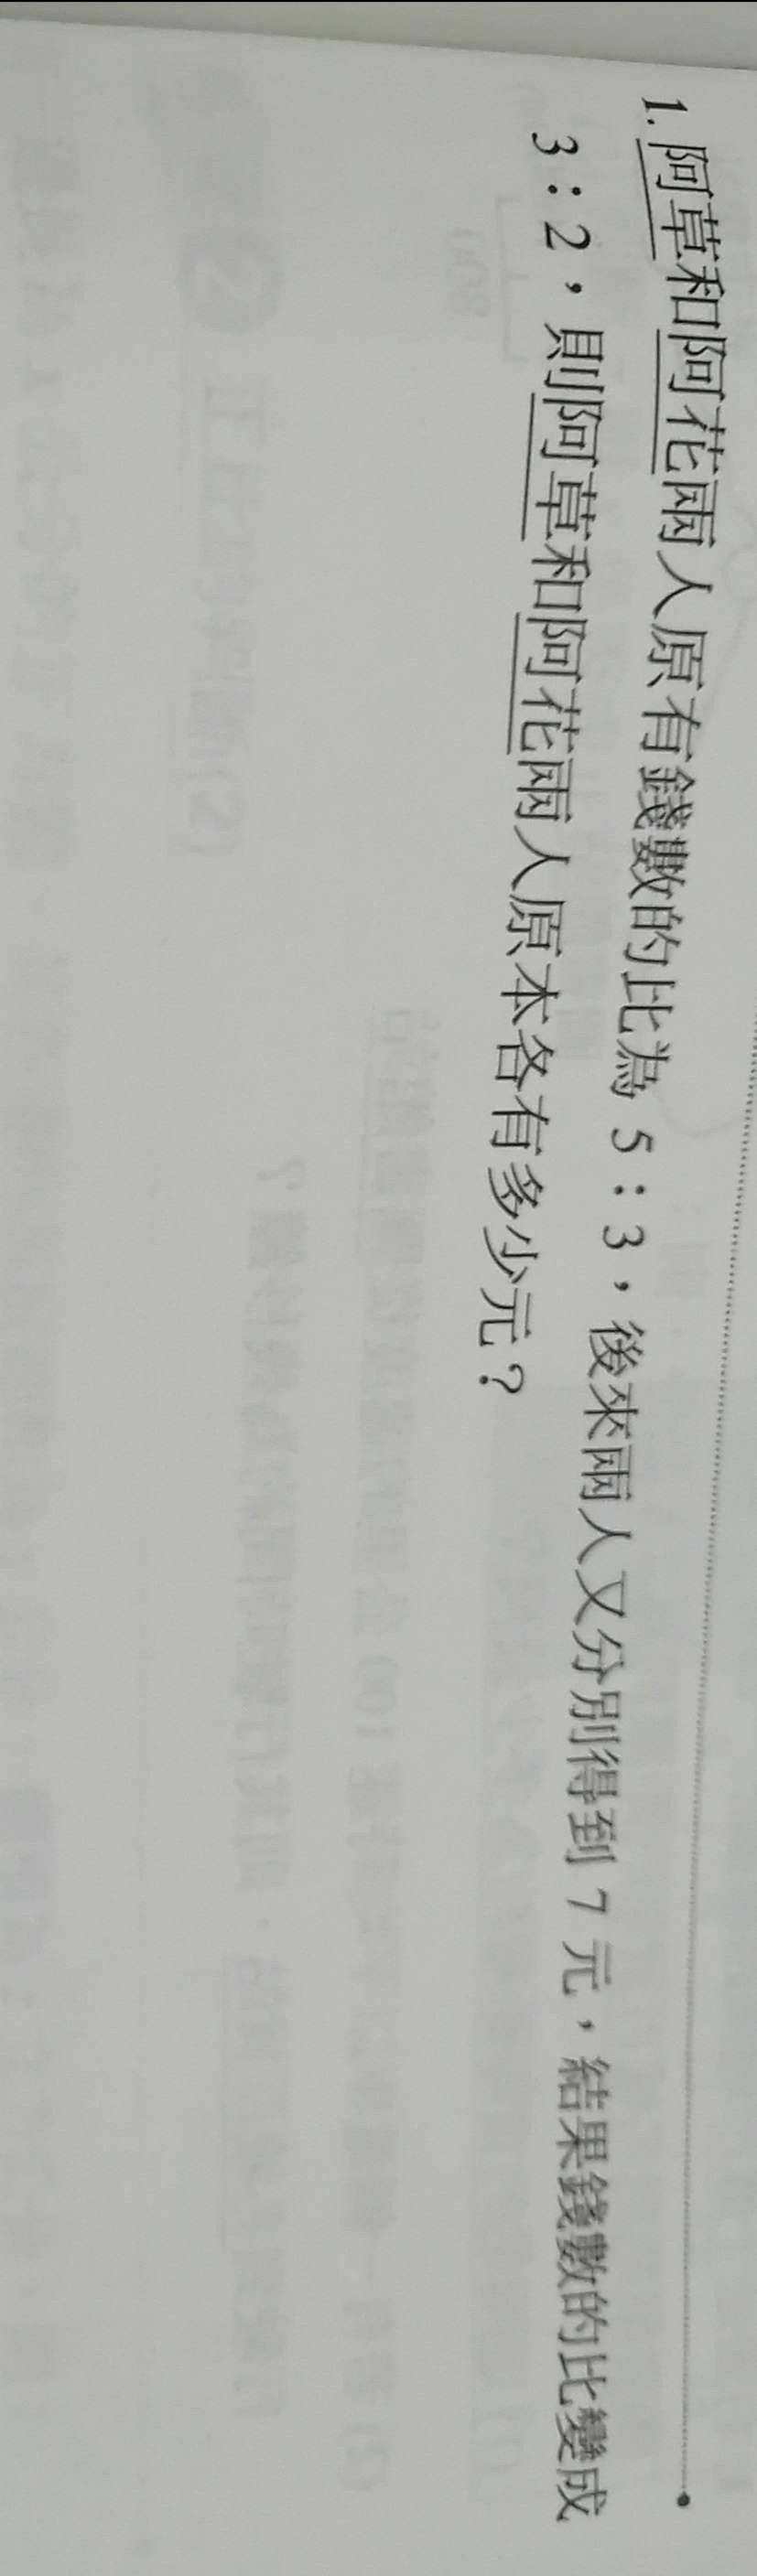 1. 阿草和阿花兩人原有錢數的比為 5：3，後來兩人又分別得到 7 元，結果錢數的比變成
3：2，則阿草和阿花兩人原本各有多少元？